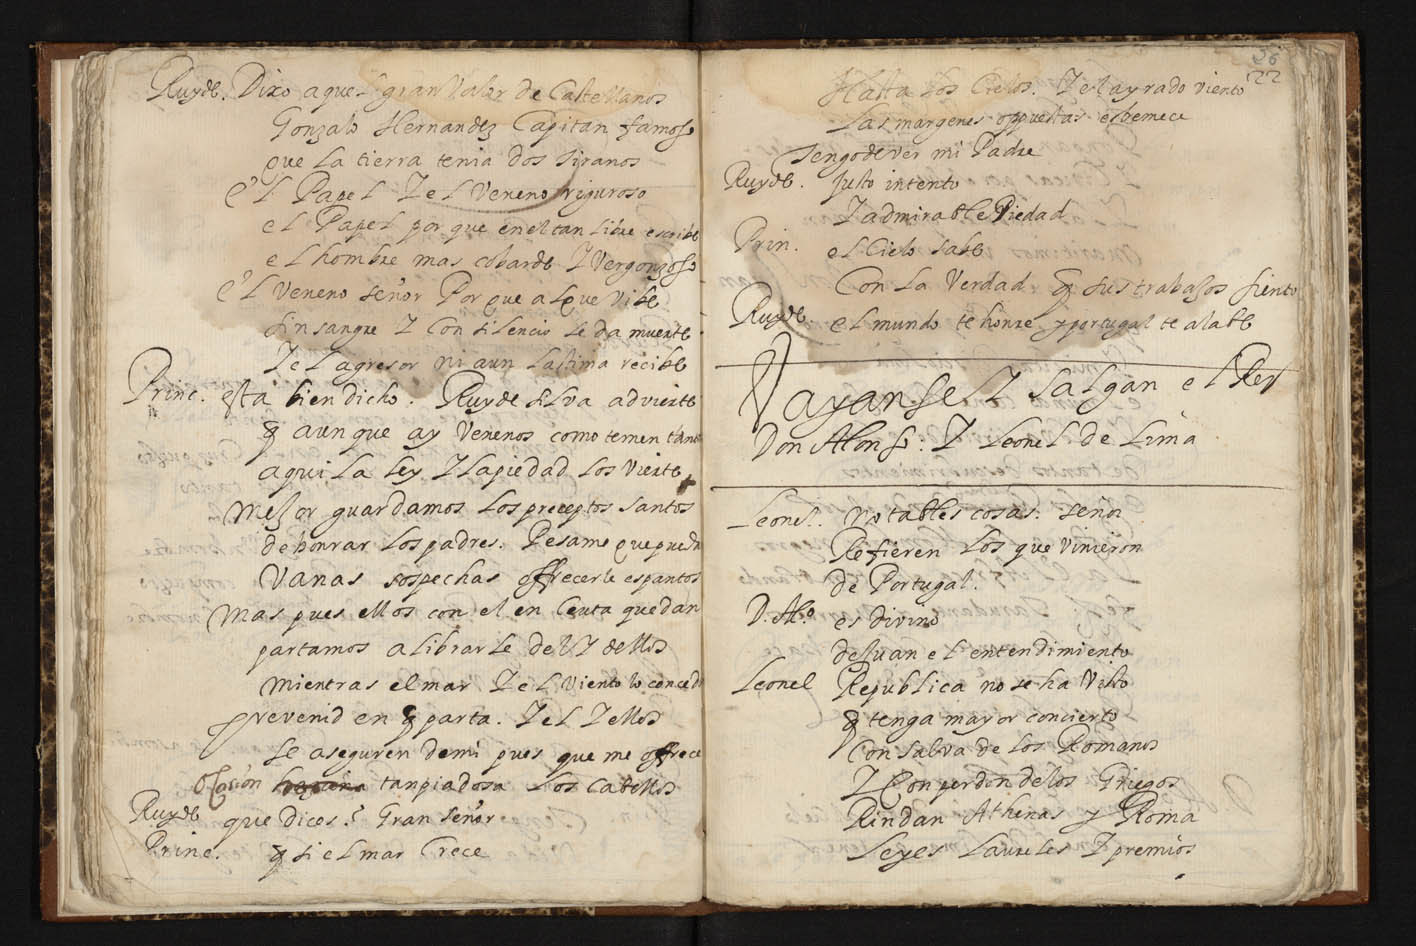 Ruyde. Dixo aquel gran Valor de Castellanos
Gonzalo Hernandez Capitan famoso
que la tierra tenia dos tiranos
el Papel Y el Veneno riguroso
el Papel por que en el tan libre escribe
el hombre mas cobarde Y Vergonzoso
el Veneno señor Por que al que Vibe
sin sangre Y Con silencio le da muerte
Y el agresor ni aun lastima recibe
Princ. esta bien dicho. Ruy de silva advierte
q aunque ay Venenos como temen tantos
aqui la ley Y la piedad los vierte
Mejor guardamos los preceptos santos
de honrar los padres. Pesame que pueda
Vanas sospechas offrecerle espantos
Mas pues ellos con el en Ceuta quedan
partamos a librarle del Y dellos
Mientras el mar Y el Viento lo conceda
prevenid en q parta. Y el Y ellos
se aseguren de mi pues que me offrece
Ocasion tan piadosa los cabellos
Ruyde que dices? Gran señor
Princ. q si el mar Crece
22
Hasta los Cielos. Y el ayrado viento
Las margenes oppuestas estremece
tengo de ver mi Padre
Ruyde. Justo intento
Y admirable Piedad
Prin. el Cielo sabe
Con la Verdad q sus trabajos siento
Ruyde. el mundo te honre y portugal te alabe
Vayanse Y salgan el Rey
Don Alonso: Y Leonel de Lima
Leonel. Notables cosas. señor
Refieren los que vinieron
de Portugal.
D. Alo. es divino
de Juan el entendimiento
Leonel Republica no se ha Visto
q tenga mayor concierto
Con salva de los Romanos
Y Con perdon de los Griegos
Rindan Athenas y Roma
Leyes Laureles Y premios